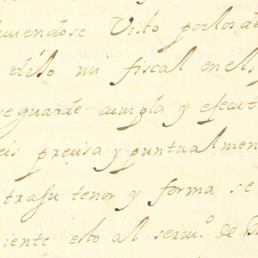 uiendose Visto por los de
dijo mi fiscal en el
se guarde cumpla y efecut
eis precisa y puntualmen
tra su tenor y forma se
iente esto al serui.º de